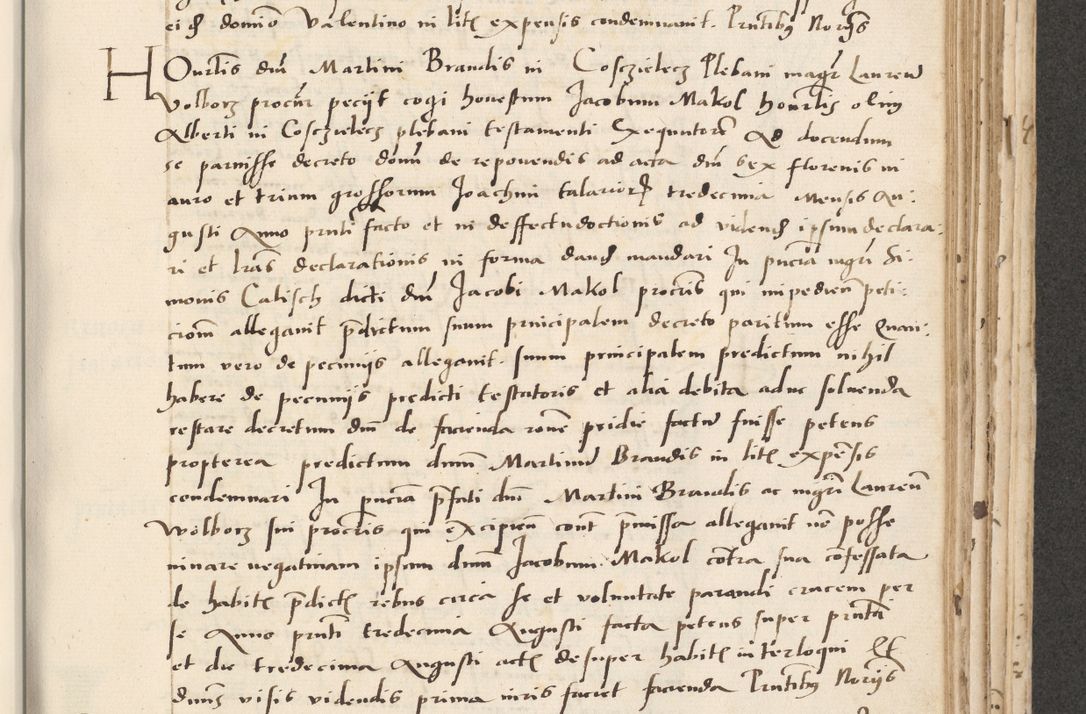 eiꝗ domino Valentino in lit expensis condemnavit. Pntibus Norijs
Honrlis dni Martini Brandis in Cosczielecz Plebani magr Lauren
Volborz procur pecijt cogi honestum Jacobum Makol honrlis olim
Alberti in Cosczielecz plebani testamenti Exequutorem Ad docendum
se paruisse decreto domi de reponendis ad acta dni sex florenis in
auro et trium grossorum Joachimi talarior tredecima Mensis Au:
gusti Anno pnti facto et in deffectu doctionis ad videnđ ipsum declara:
ri et lras declarationis in forma danđ mandari In pncia mgri Si:
monis Calisch dicti dni Jacobi Makol procris qui impedien peti:
ciom allegavit pdictum suum principalem decreto paritum esse Quan:
tum vero de pecunijs allegavit. suum principalem predictum nihil
habere de pecunijs predicti testatoris et alia debita adhuc soluenda
restare decretum dni de facienda rone pridie factu fuisse petens
propterea predictum dnum Martinu Brandis in lit expensis
condemnari In pncia pfati dni Martini Brandis ac mgri Lauren
Wolborz sui procris qui Excipien cont pmissa allegavit non posse
iuvare negativam ipsum dnum Jacobum Makol contra sua confessata
de habit pdict rebus circa se et voluntate parandi cracem per
se Anno pnti tredecima Augusti facta petens super pnta
et die tredecima Augusti act desuper habit interloqui Et
dnus visis videndis prima iuris faciet facienda Pntibus Norijs